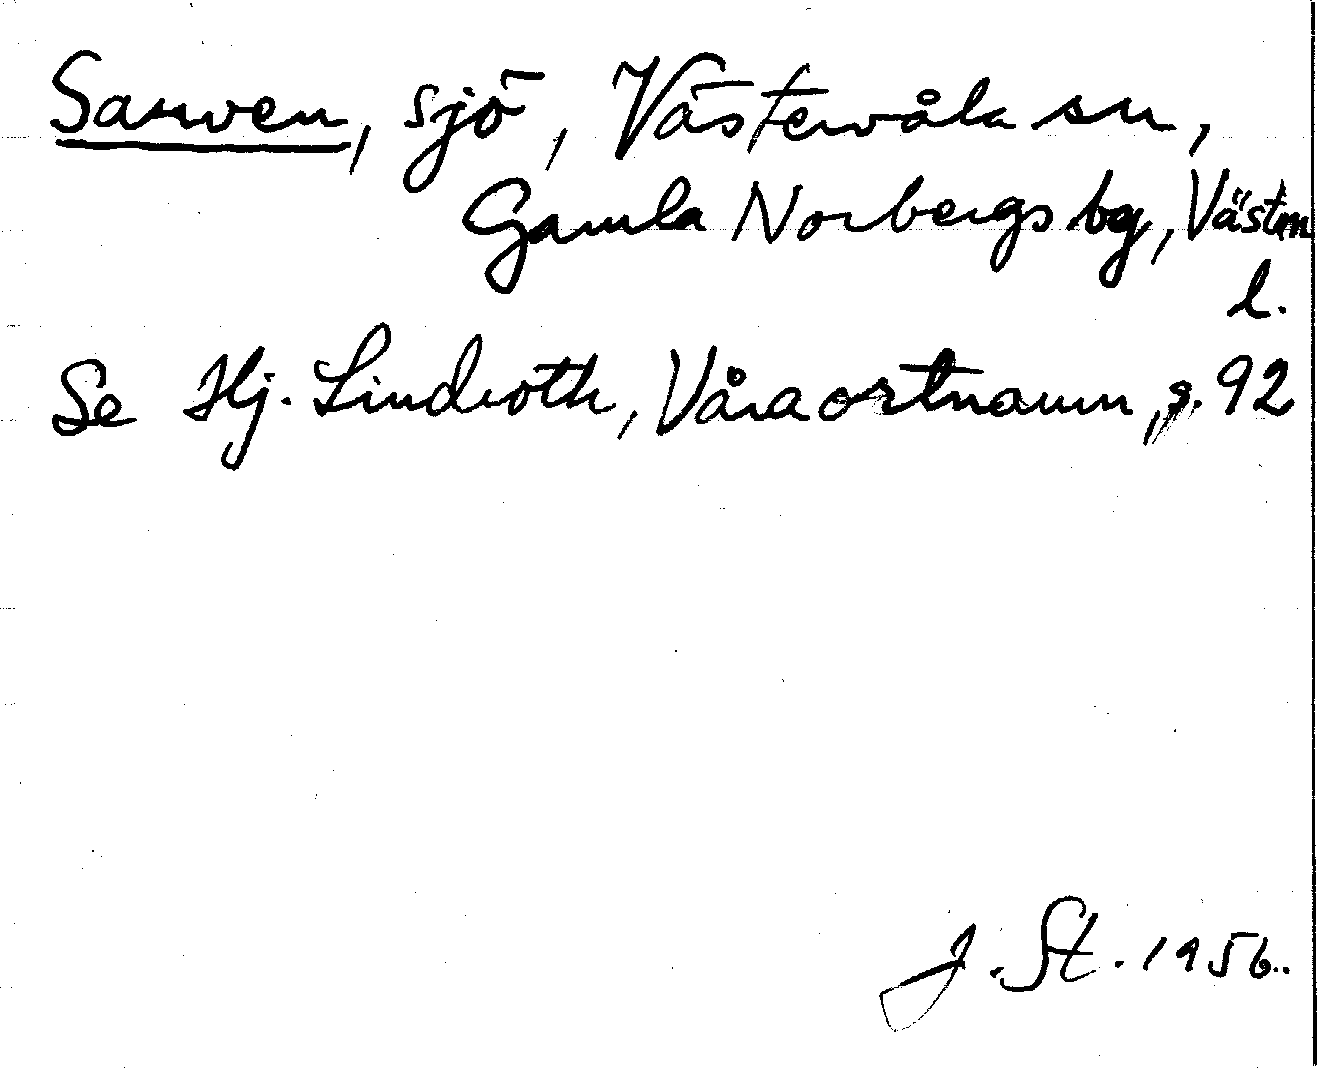 Sarven, sjö, Västervåla sn,
Gamla Norbergs bg, Västm
l.
Se Hj. Lindroth, Våra ortnamn, s. 92
J. St. 1956.